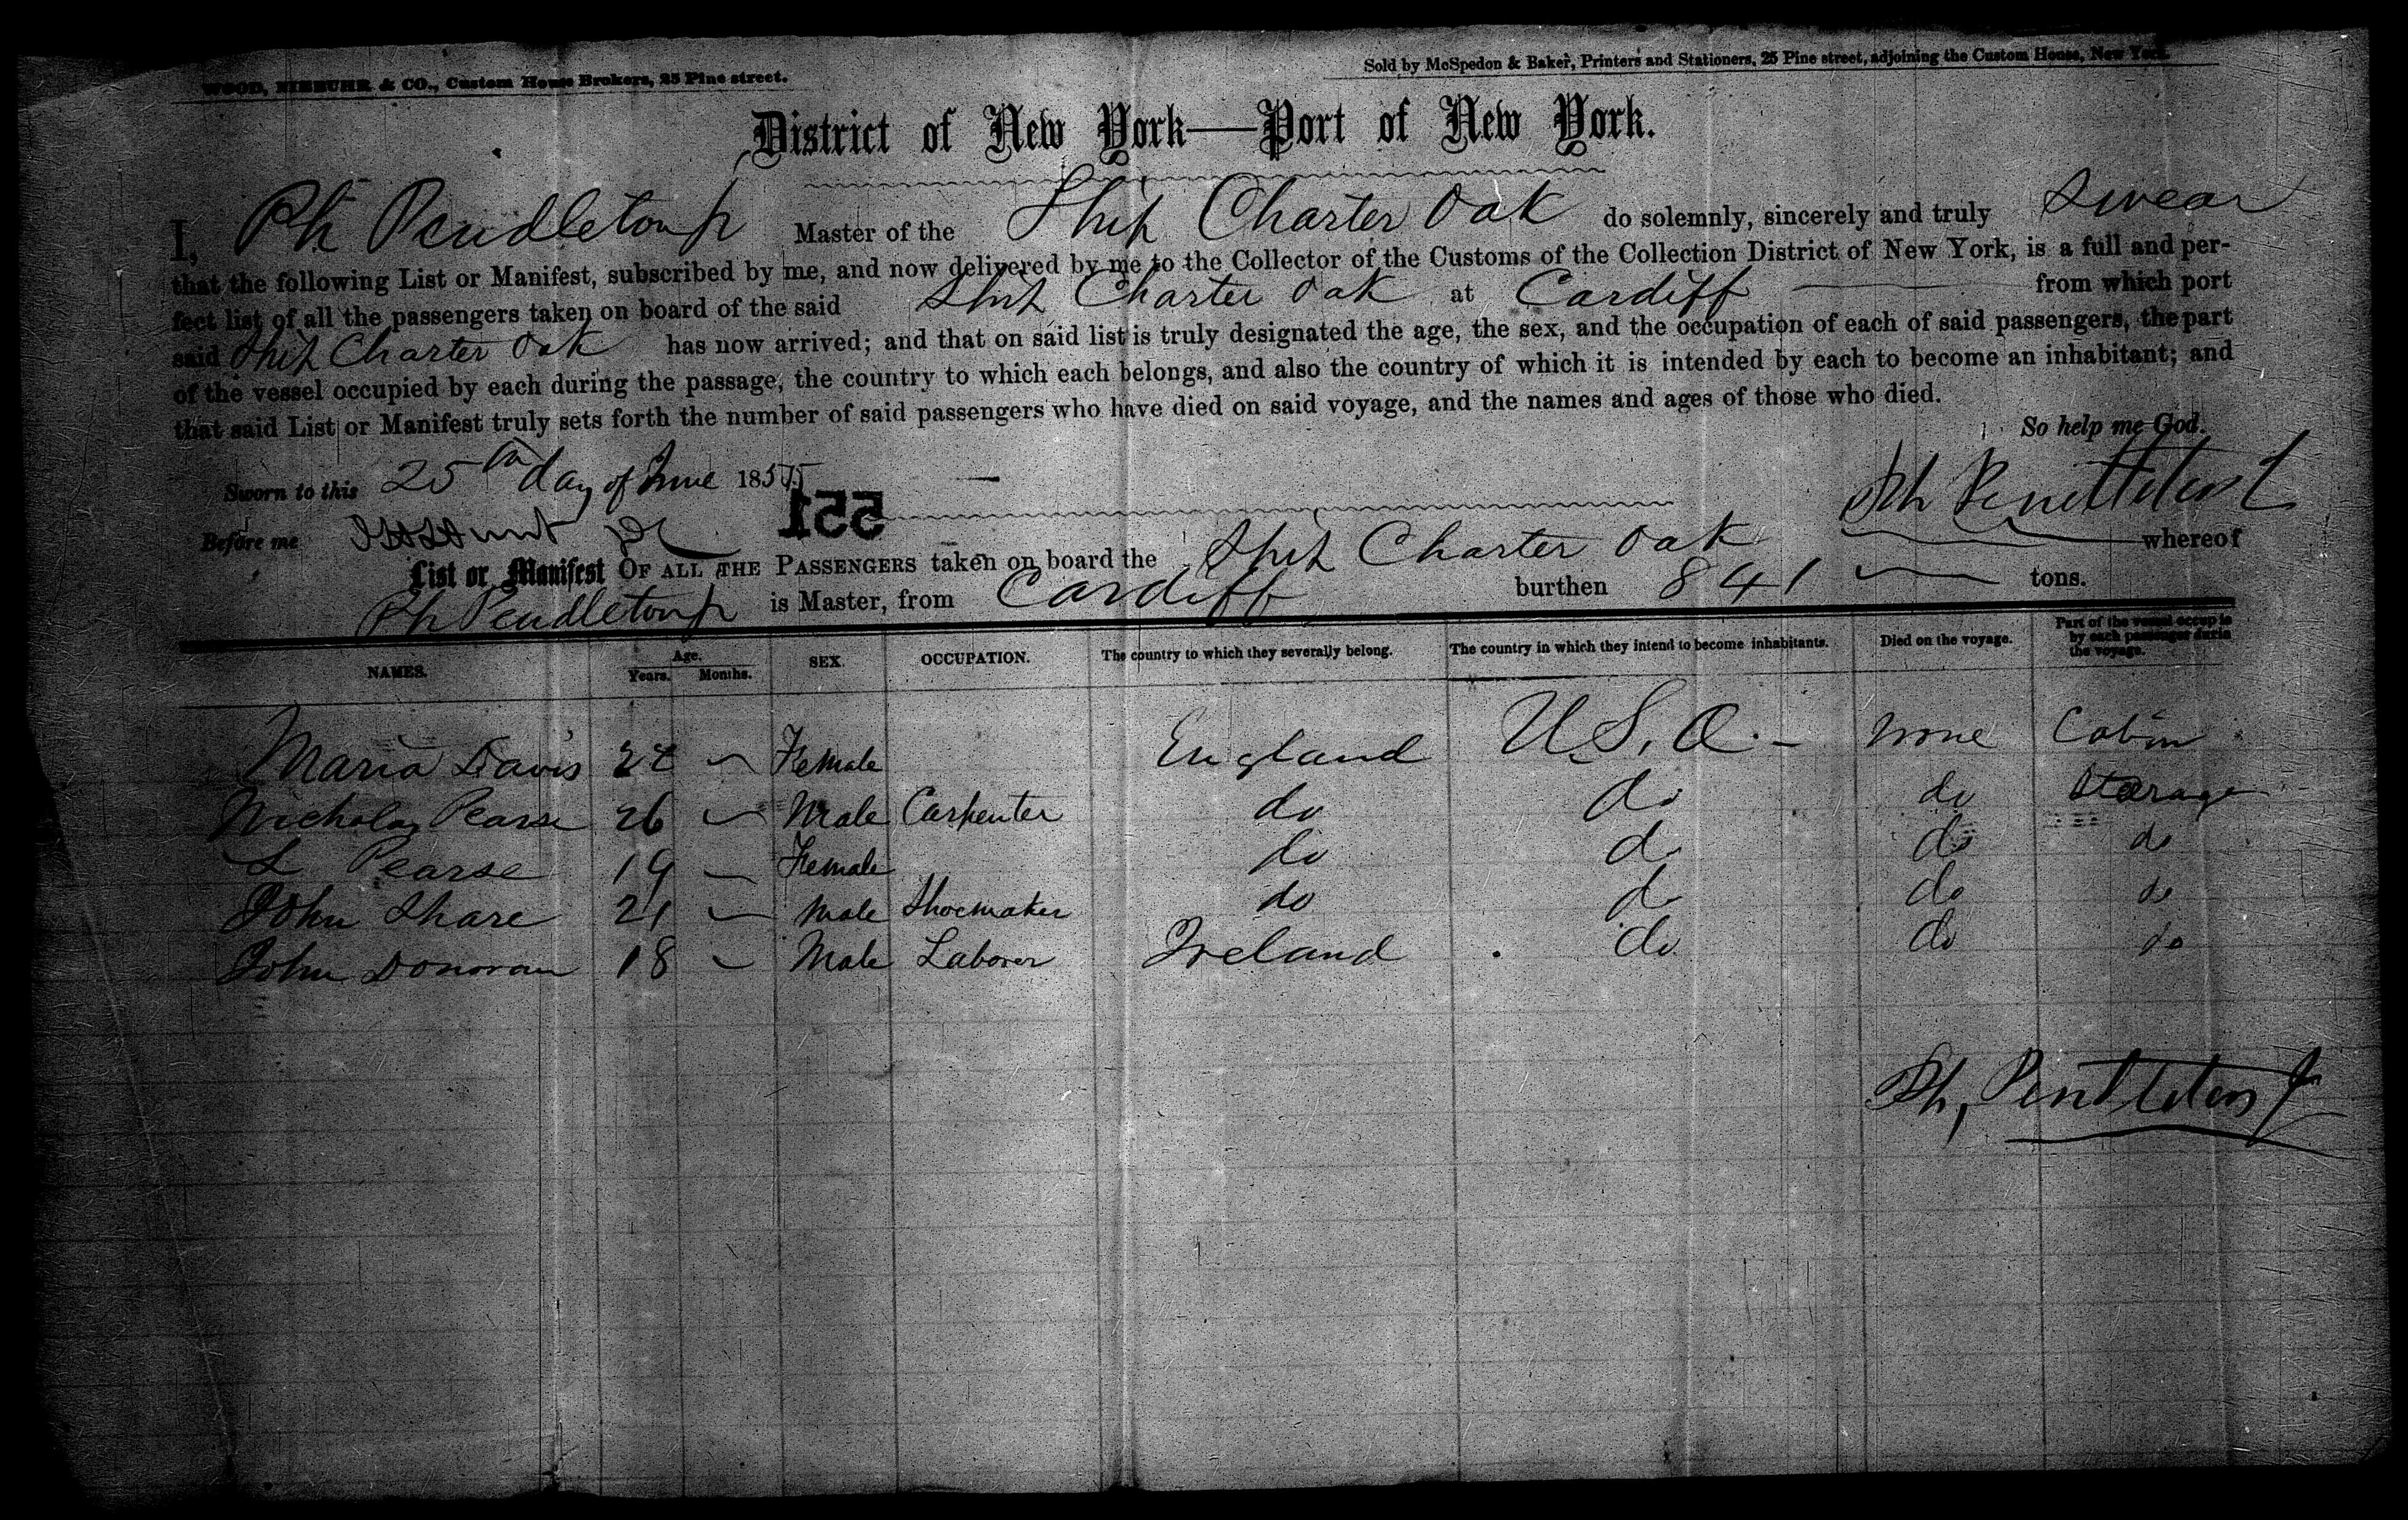 WOOD, NIEBUHR & CO., Custom House Brokers, 25 Pine street.
Sold by McSpedon & Baker, Printers and Stationers, 25 Pine street, adjoining the Custom House, New York.
District of New York—Port of New York.
I, Ph Pendleton Jr Master of the Ship Charter Oak do solemnly, sincerely and truly Swear
that the following List or Manifest, subscribed by me, and now delivered by me to the Collector of the Customs of the Collection District of New York, is a full and per-
fect list of all the passengers taken on board of the said Ship Charter Oak at Cardiff from which port
said Ship Charter Oak has now arrived; and that on said list is truly designated the age, the sex, and the occupation of each of said passengers, the part
of the vessel occupied by each during the passage, the country to which each belongs, and also the country of which it is intended by each to become an inhabitant; and
that said List or Manifest truly sets forth the number of said passengers who have died on said voyage, and the names and ages of those who died.
So help me God.
Sworn to this 25th day of June 1855
Ph Pendleton Jr
551
Before me
List or Manifest OF ALL THE PASSENGERS taken on board the Ship Charter Oak whereof
Ph Pendleton Jr is Master, from Cardiff burthen 841 tons.
NAMES. Age. Years. Months. SEX. OCCUPATION. The country to which they severally belong. The country in which they intend to become inhabitants. Died on the voyage. Part of the vessel occup'ie by each passenger durin the voyage.
Maria Davis Female England U.S.A. - None Cabin
Nicholas Pearse 26 Male Carpenter do do do Starage
L Pearse 19 Female do do do do
John Share 21 Male Shoemaker do do do do
John Donovan 18 Male Laborer Ireland do do do
Ph, Pendleton Jr